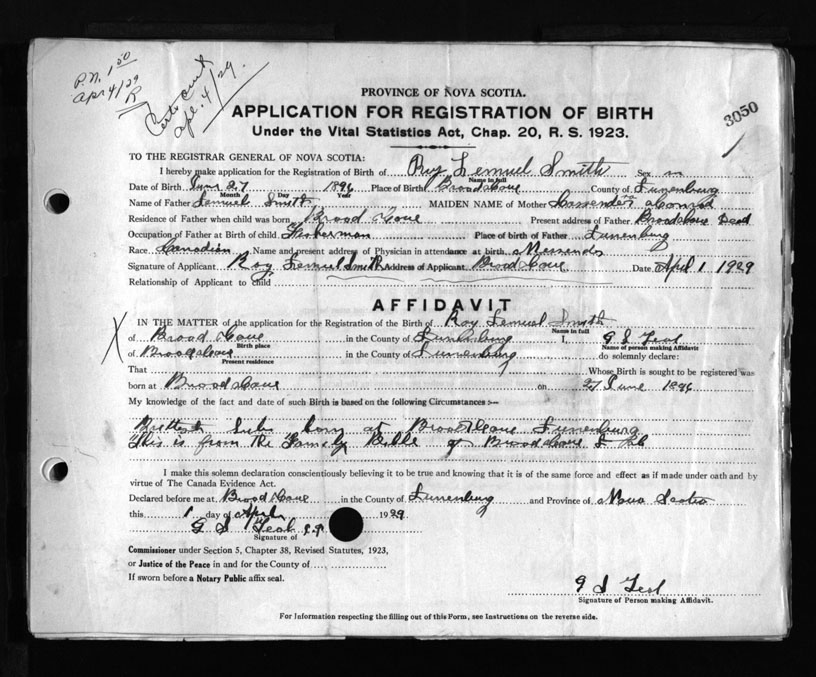 P.N. 1.50
Apr 4/29
R
apl. 4/29.
3050
PROVINCE OF NOVA SCOTIA.
APPLICATION FOR REGISTRATION OF BIRTH
Under the Vital Statistics Act, Chap. 20, R. S. 1923.
TO THE REGISTRAR GENERAL OF NOVA SCOTIA:
I hereby make application for the Registration of Birth of Roy Lemuel Smith Sex m
Name in full
Date of Birth June 27 1896 Place of Birth Broad Cove County of Lunenburg
Month Day Year
Name of Father Lemuel Smith MAIDEN NAME of Mother Conrad
Residence of Father when child was born Broad Cove Present address of Father Broad Cove Dead
Occupation of Father at Birth of child Fisherman Place of birth of Father Lunenburg
Race Canadian Name and present address of Physician in attendance at birth
Signature of Applicant Roy Lemuel Smith Address of Applicant Broad Cove Date April 1 1929
Relationship of Applicant to child
AFFIDAVIT
IN THE MATTER of the application for the Registration of the Birth of Roy Lemuel Smith
Name in full
of Broad Cove in the County of Lunenburg I, G S Teal
Birth place Name of person making Affidavit
of Broad Cove in the County of Lunenburg do solemnly declare:
Present residence
That Whose Birth is sought to be registered was
born at Broad Cove on 27 June 1896
My knowledge of the fact and date of such Birth is based on the following Circumstances :—
born at Broad Cove Lunenburg
This is from the Family Bible of Broad Cove
I make this solemn declaration conscientiously believing it to be true and knowing that it is of the same force and effect as if made under oath and by
virtue of The Canada Evidence Act.
Declared before me at Broad Cove in the County of Lunenburg and Province of Nova Scotia
this 1 day of April 1929
G S Teal J.P.
Signature of
Commissioner under Section 5, Chapter 38, Revised Statutes, 1923,
or Justice of the Peace in and for the County of
If sworn before a Notary Public affix seal.
G S Teal
Signature of Person making Affidavit.
For Information respecting the filling out of this Form, see Instructions on the reverse side.